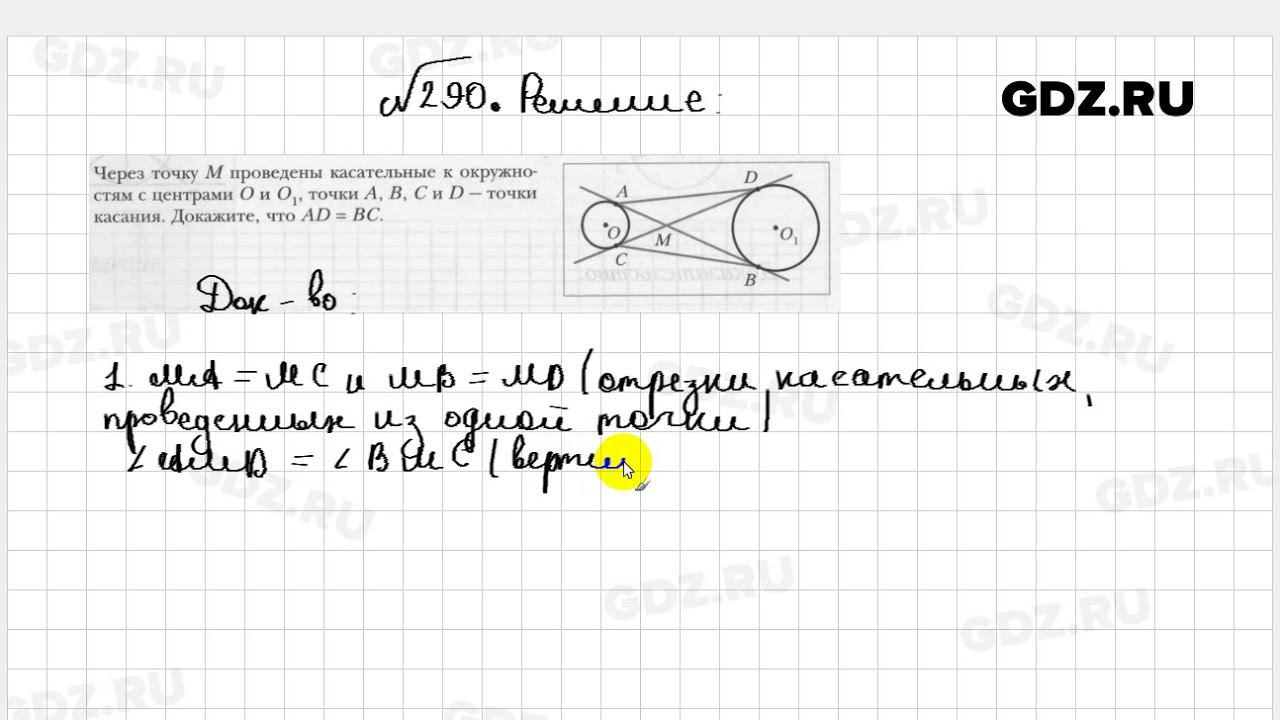 GDZ.RU
GDZ.RU
№290. Решение:
GDZ.RU
Через точку M проведены касательные к окружно-
стям с центрами O и O₁, точки A, B, C и D – точки
касания. Докажите, что AD = BC.
A
D
O
M
O₁
C
B
GDZ.RU
Док-во:
GDZ.RU
GDZ.RU
1. MA = MC и MB = MD (отрезки касательных,
GDZ.RU
проведенных из одной точки)
∠AMD = ∠BMC (верти
GDZ.RU
GDZ.RU
GDZ.RU
GDZ.RU
GDZ.RU
GDZ.RU